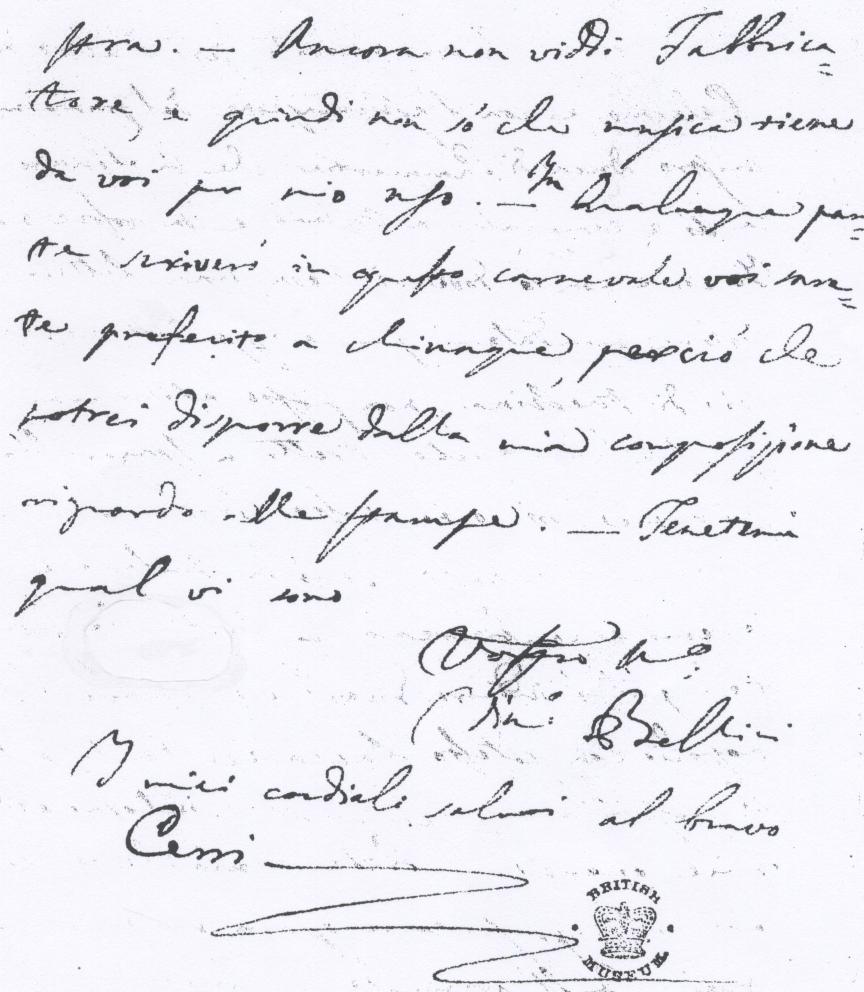 stra. — Ancora non viddi Fabbrica=
tore, e quindi non só che musica tiene
da voi per mio uso. — In Qualunque par=
te scriveró in questo carnevale voi sare=
te preferito a chiunque perció che
potrei disporre dalla mia composizione
riguardo alle stampe. — Tenetemi
qual vi sono
Vostro A.º
Vin.º Bellini
I miei cordiali saluti al bravo
Cerri
BRITISH
MUSEUM